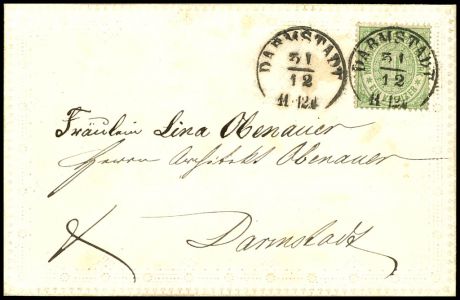 DARMSTADT
31
12
11-12
DARMSTADT
31
12
11-12
KREUZER
Fräulein Lina Obenauer
Herrn Architekt Obenauer
Darmstadt